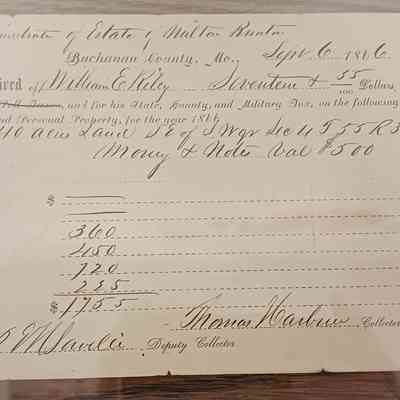 of Estate of Milton
Buchanan County, Mo., Sept 6 1866
of William E Riley Seventeen & 55/100 Dollars,
Poll Taxes, and for his State, County, and Military Tax, on the following
and Personal Property, for the year 1866
40 acres Land S E of S W qr Sec 4 T 55 R 3
Money & Notes Val $500
$
360
450
720
225
$ 1755
Thomas Harbine Collector
Deputy Collector